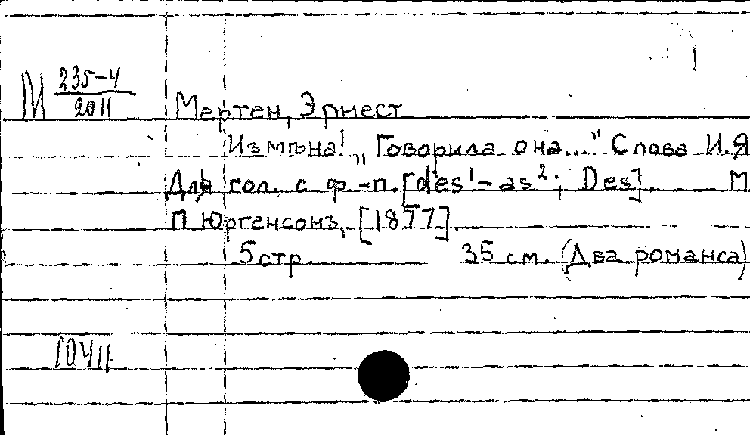 М 235-4/2011
Мертен, Эрнест
Измѣна! „Говорила она..." Слова И.Я
Для гол. с ф-п. [des¹-as²; Des]. М
П. Юргенсонъ, [1877].
5 стр 35 см. (Два романса)
10411